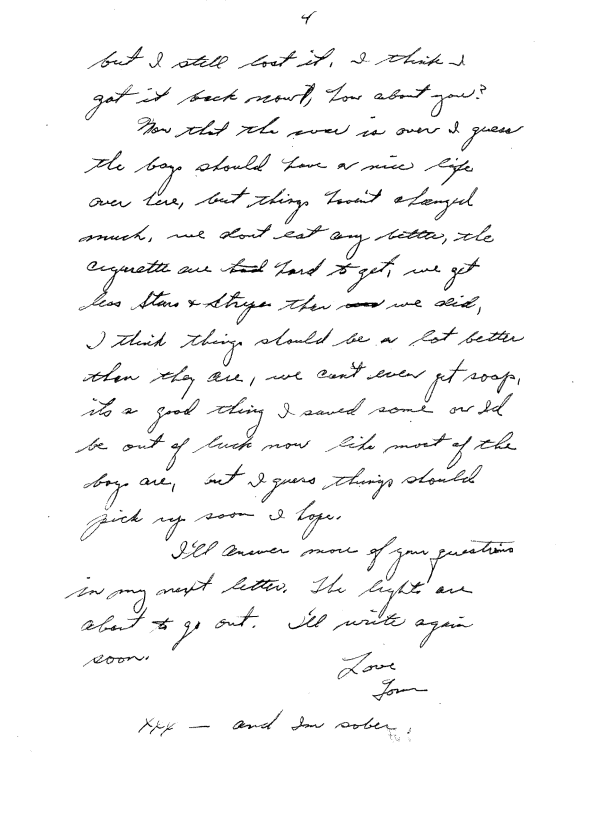 4
but I still lost it, I think I
got it back now, how about you?
Now that the war is over I guess
the boys should have a nice life
over here, but things haven't changed
much, we dont eat any better, the
cigarette are hard to get, we get
less Stars & Stripes then we did,
I think things should be a lot better
then they are, we can't even get soap,
its a good thing I saved some or Id
be out of luck now like most of the
boys are, but I guess things should
pick up soon I hope.
I'll answer more of your questions
in my next letter. The lights are
about to go out. I'll write again
soon.
Love
Tom
xxx — and Im sober.